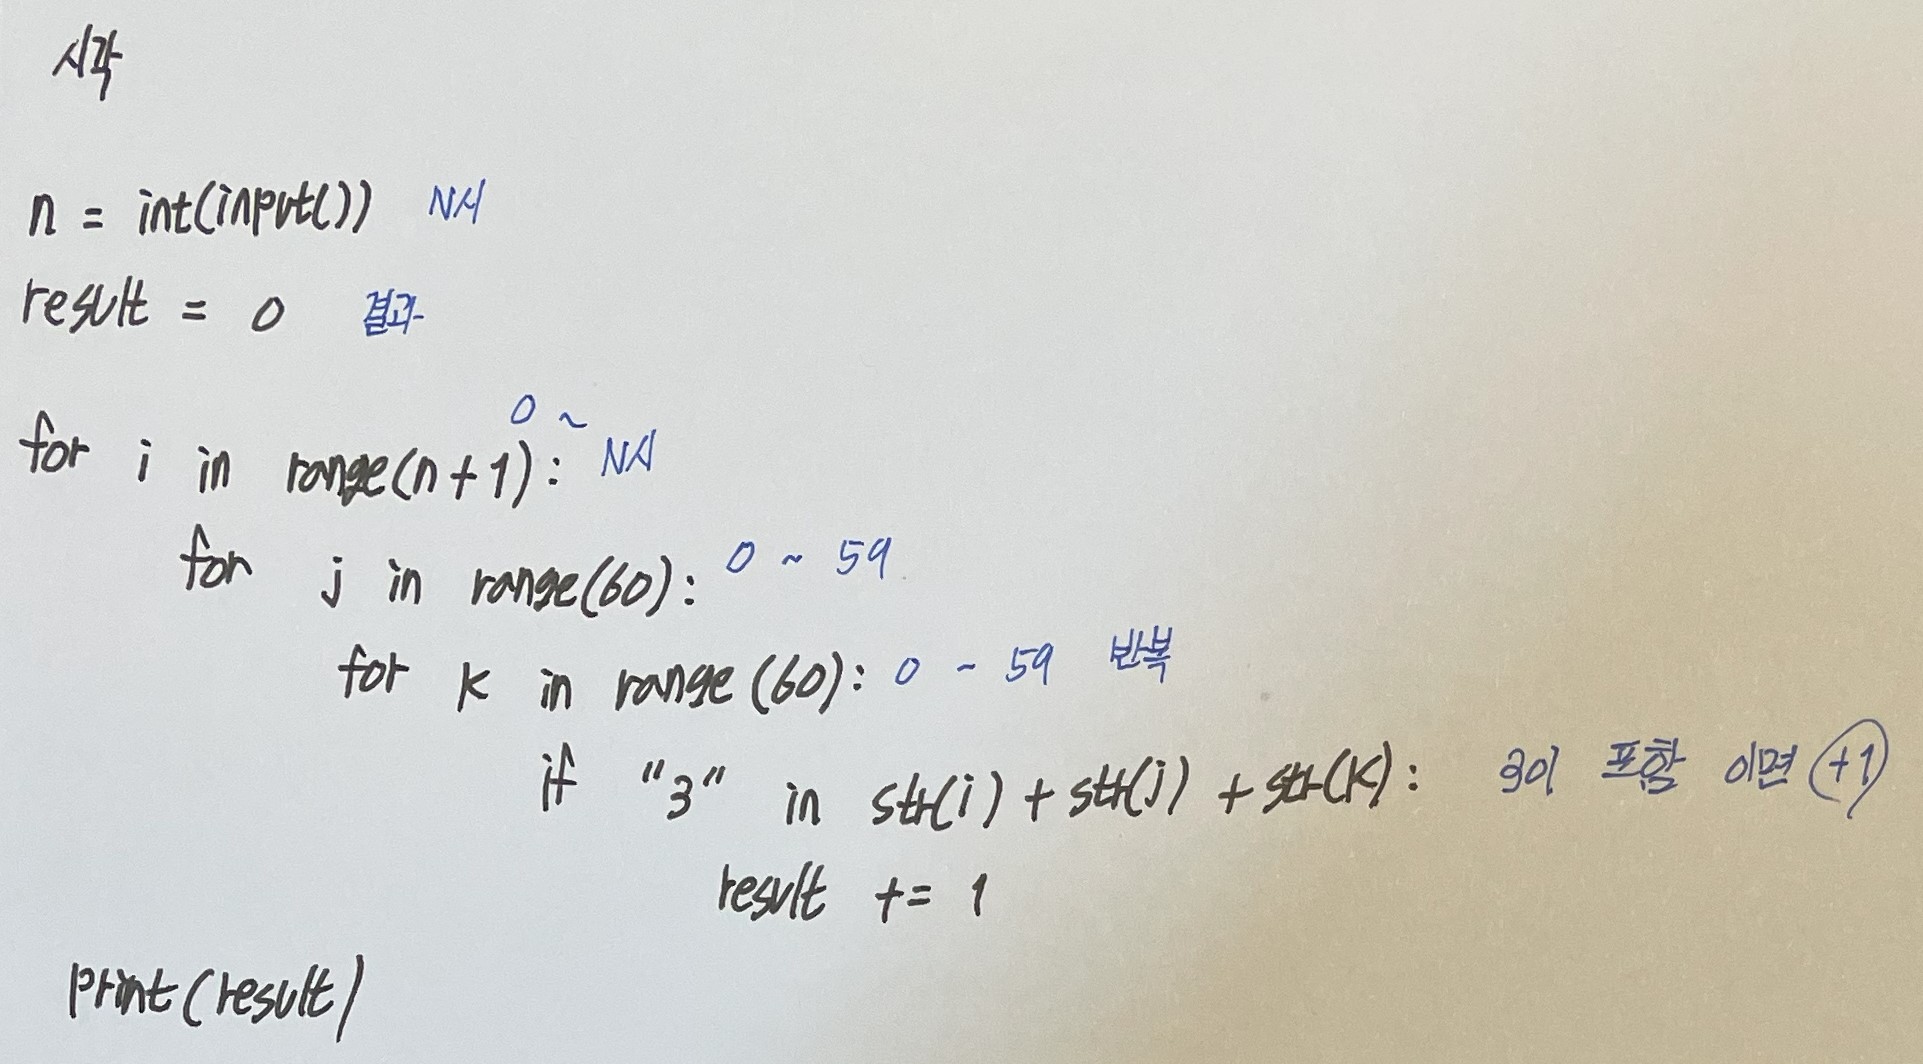 시각
n = int(input()) N시
result = 0 결과
for i in range(n+1): 0 ~ N시
for j in range(60): 0 ~ 59
for k in range(60): 0 ~ 59 반복
if "3" in str(i) + str(j) + str(k): 3이 포함 이면 +1
result += 1
print(result)